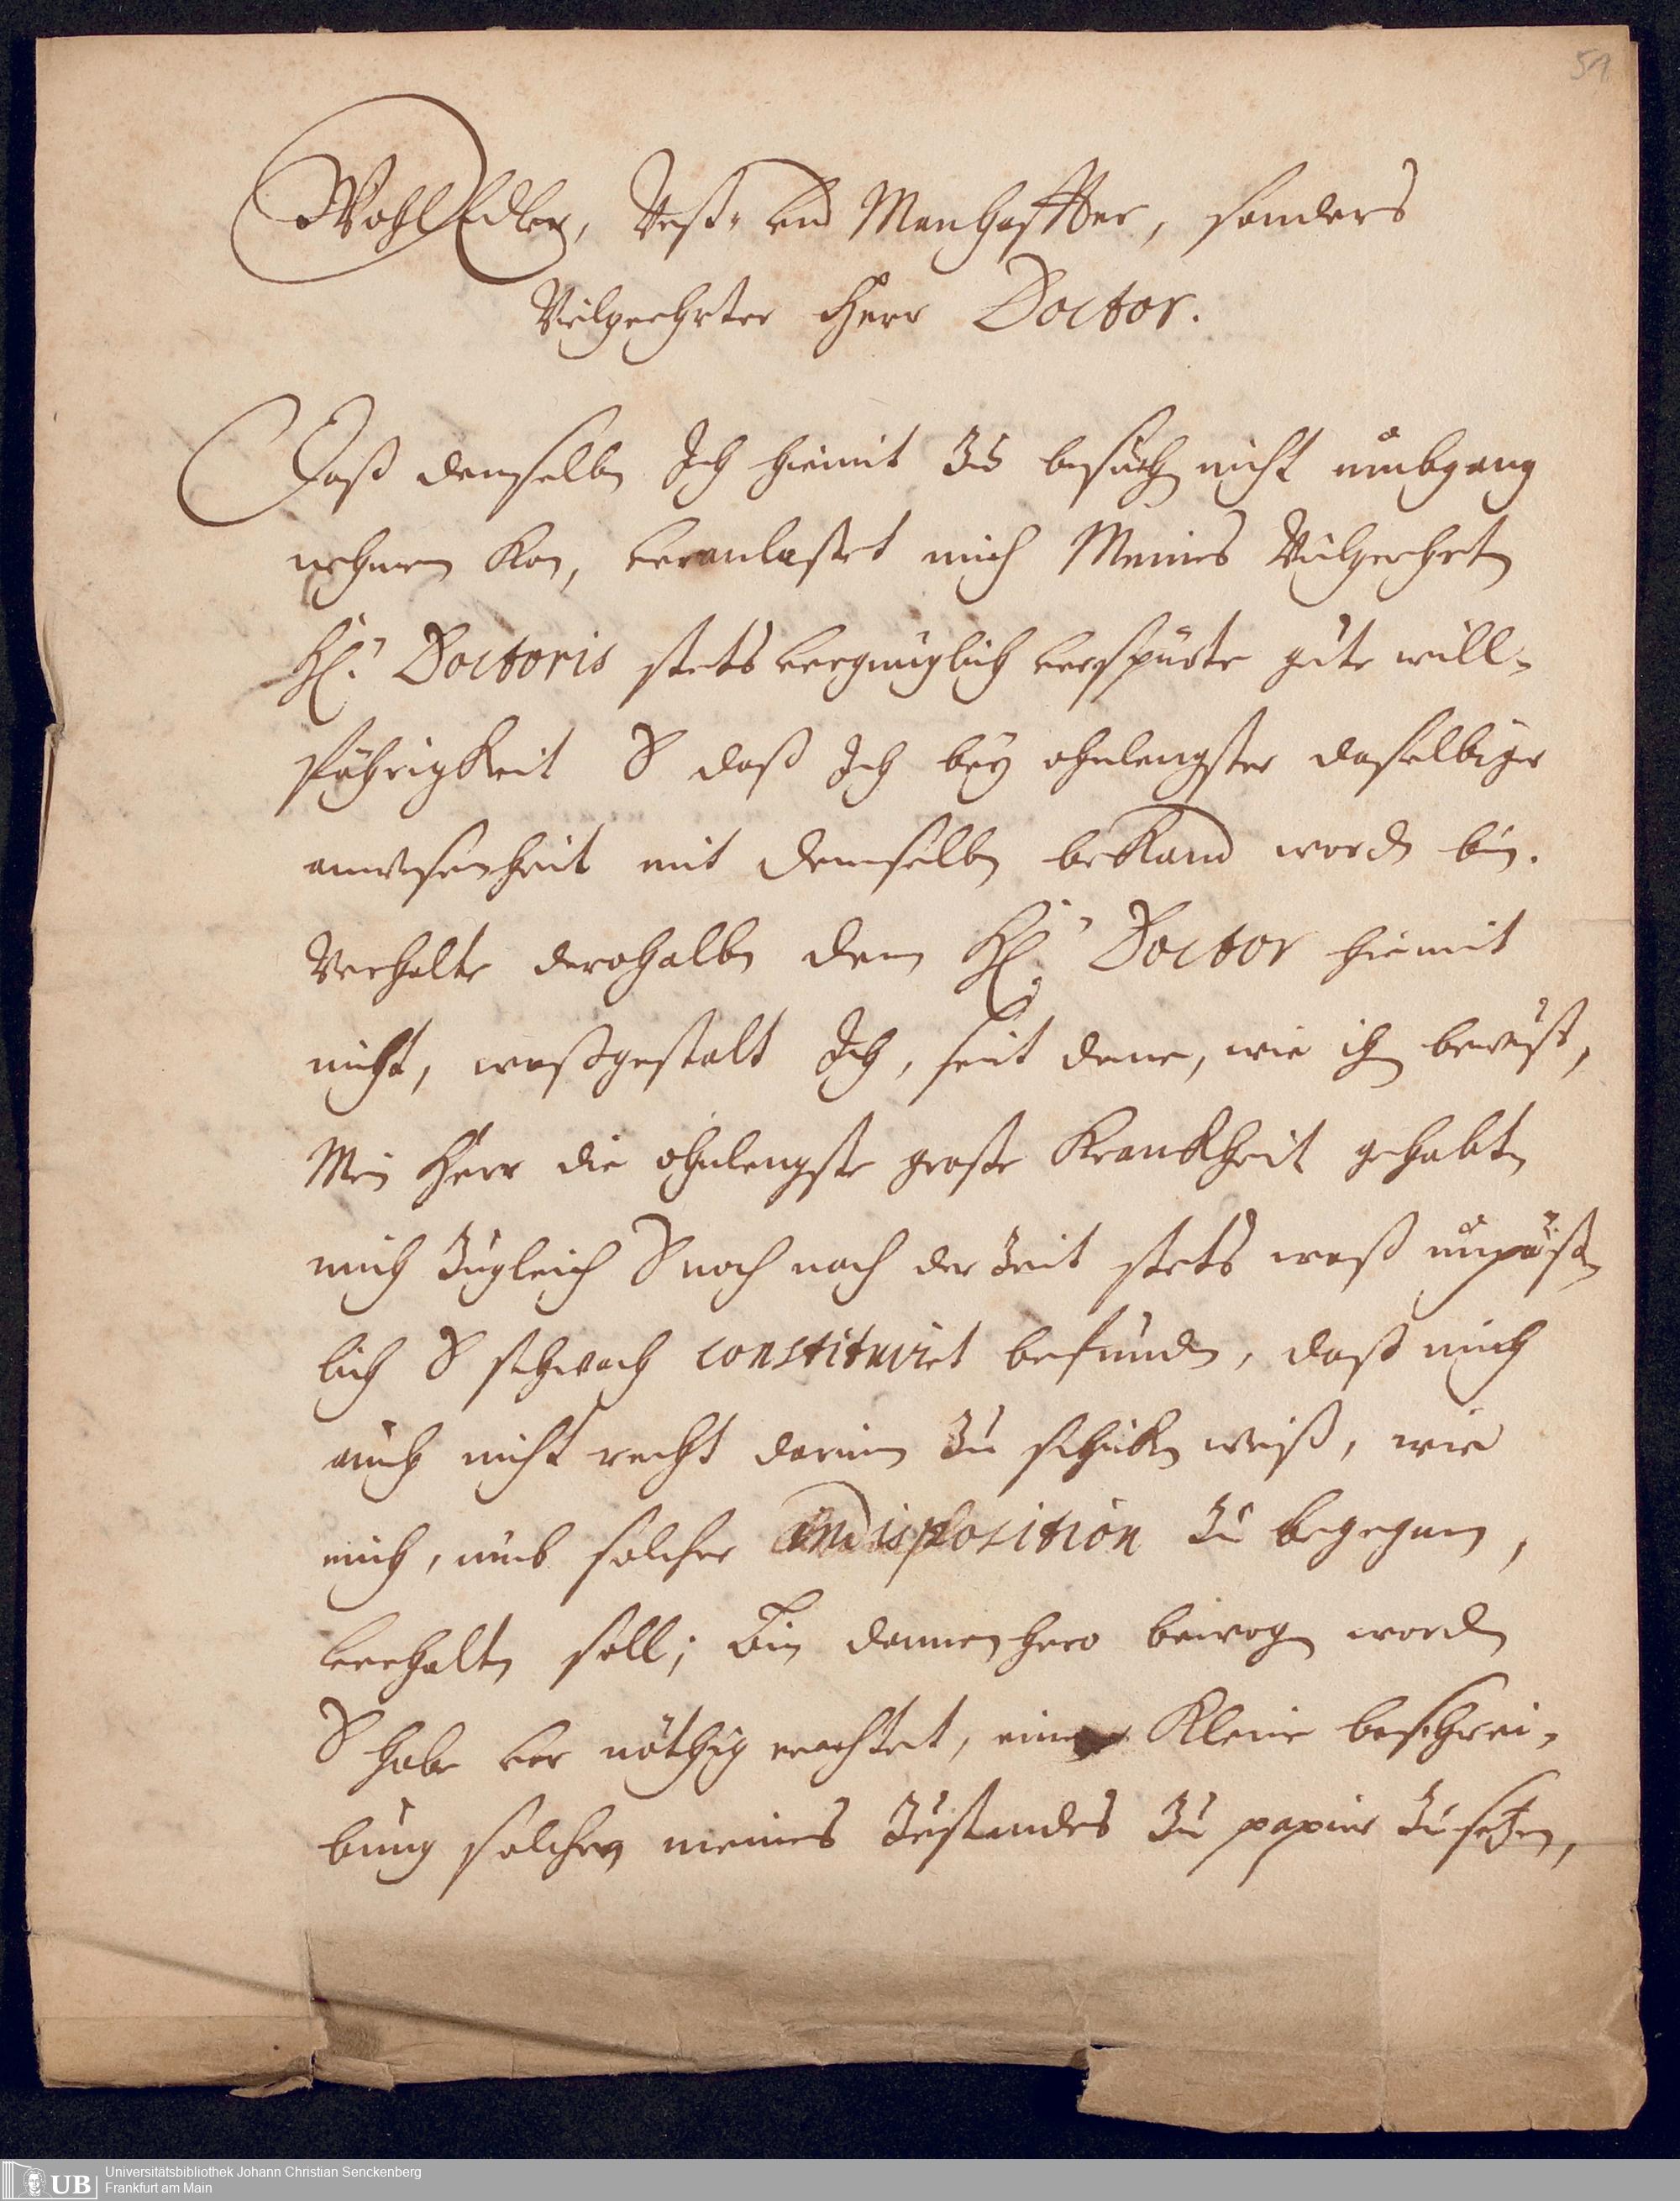 51
WohlEdler, Vest- und Manhaffter, sonders
Vielgeehrter Herr Doctor.
Daß demselben Ich hiemit zu besuchen nicht umbgang
nehmen kan, veranlaßet mich Meines Vielgeehrten
H. Doctoris stets vergnüglich verspürte gute will-
fährigkeit & daß Ich bey ohnlengster daselbiger
anwesenheit mit demselben bekand worden bin.
Verhalte derohalben dem H. Doctor hiemit
nicht, waßgestalt Ich, seit deme, wie ihm bewust,
Mein Herr die ohnlengste große Kranckheit gehabt,
mich zugleich & noch nach der Zeit stets waß unpäß-
lich & schwach constituiret befunden, daß mich
auch nicht recht darein zu schicken weiß, wie
mich, umb solcher indisposition zu begegnen,
verhalten soll; Bin dannenhero bewogen worden
& habe vor nöthig erachtet, eine Kleine beschrei-
bung solches meines Zustandes zu papier zusetzen,
UB
Universitätsbibliothek Johann Christian Senckenberg
Frankfurt am Main